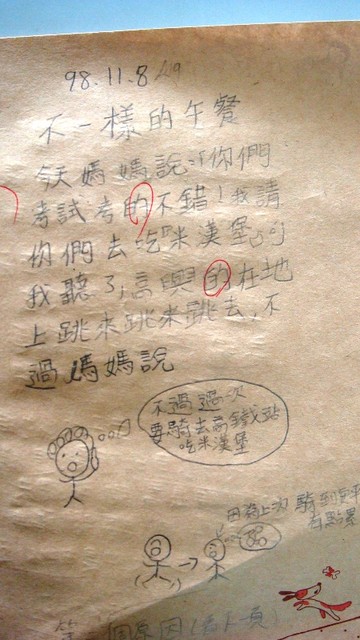 98.11.8
不一樣的午餐
今天媽媽說:「你們
考試考的不錯!我請
你們去吃米漢堡。」
我聽了,高興的在地
上跳來跳來跳去,不
過媽媽說
不過這次
要騎去高鐵站
吃米漢堡
因為上次騎到
有點累
個原因(看下頁)